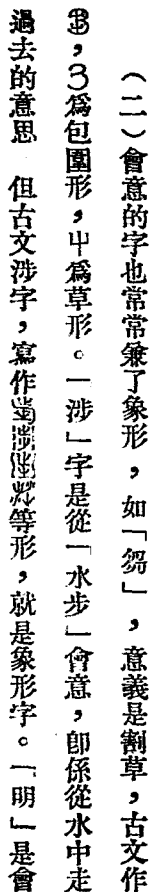 （二）會意的字也常常兼了象形，如「芻」，意義是割草，古文作
，𠃌爲包圍形，屮爲草形。「涉」字是從「水步」會意，卽係從水中走
過去的意思　但古文涉字，寫作等形，就是象形字。「明」是會